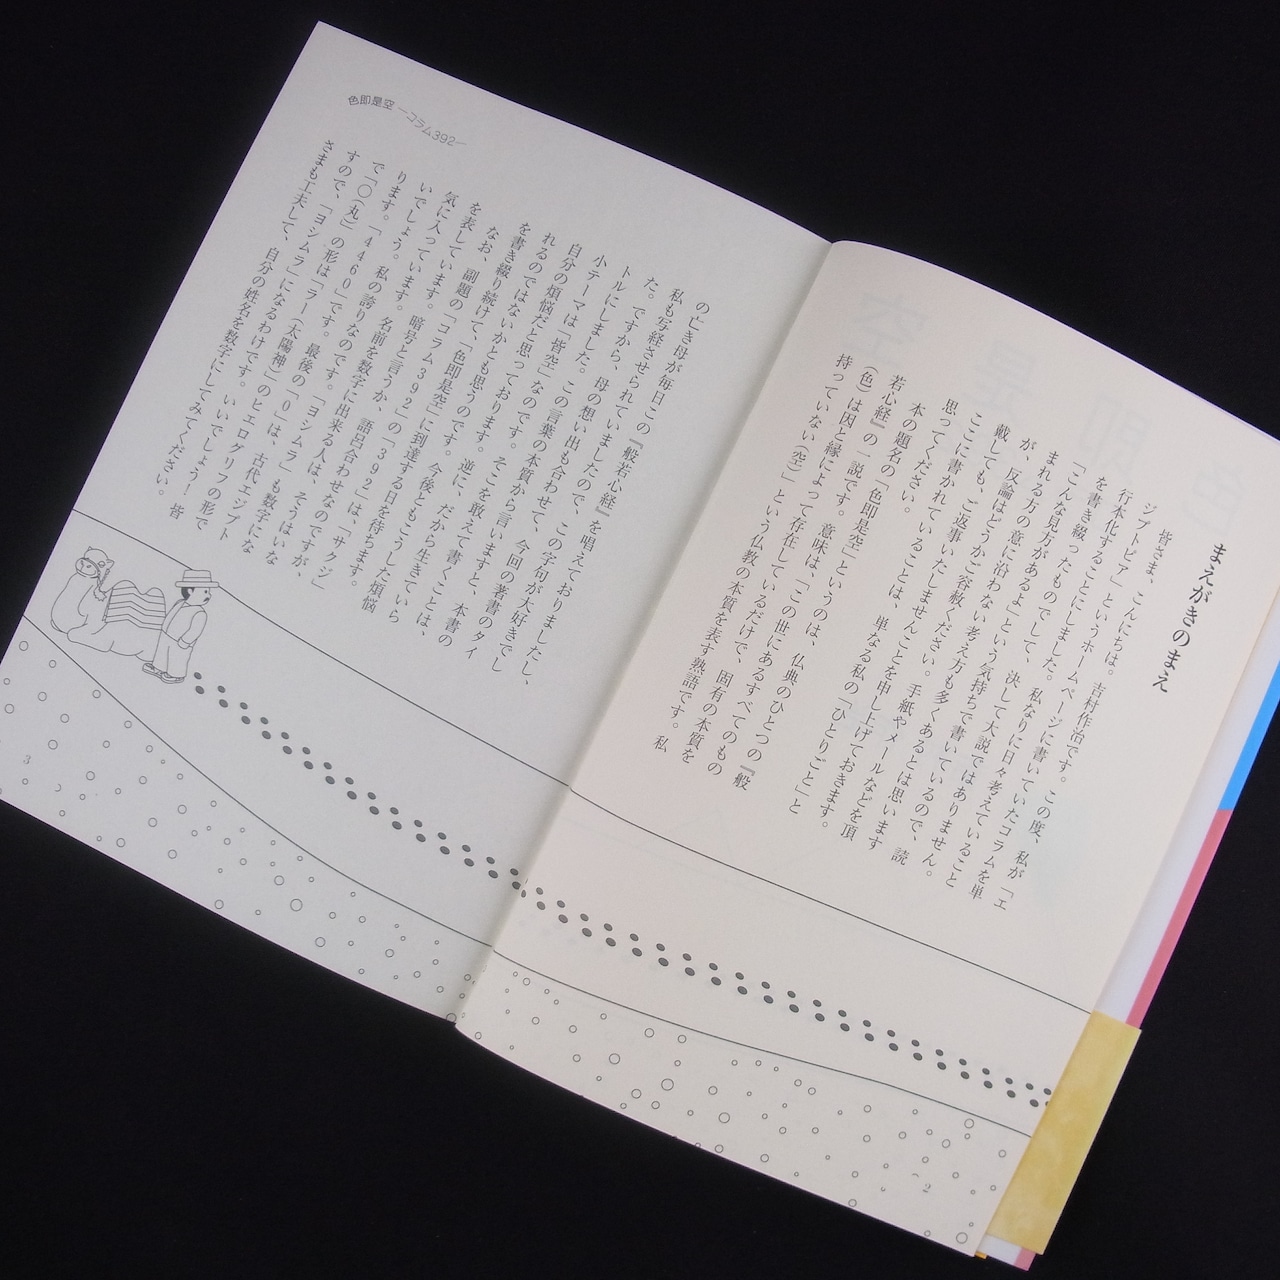 まえがきのまえ
皆さま、こんにちは。吉村作治です。この度、私が「エ
ジプトピア」というホームページに書いていたコラムを単
行本化することにしました。私なりに日々考えていること
を書き綴ったものでして、決して大説ではありません。
「こんな見方があるよ」という気持ちで書いているので、読
まれる方の意に沿わない考え方も多くあるとは思います
が、反論はどうかご容赦ください。手紙やメールなどを頂
戴しても、ご返事いたしませんことを申し上げておきます。
ここに書かれていることは、単なる私の「ひとりごと」と
思ってください。
本の題名の「色即是空」というのは、仏典のひとつの『般
若心経』の一説です。意味は、「この世にあるすべてのもの
（色）は因と縁によって存在しているだけで、固有の本質を
持っていない（空）」という仏教の本質を表す熟語です。私
2
色即是空 ―コラム392―
の亡き母が毎日この『般若心経』を唱えておりましたし、
私も写経させられていましたので、この字句が大好きでし
た。ですから、母の想い出も合わせて、今回の著書のタイ
トルにしました。この言葉の本質から言いますと、本書の
小テーマは「皆空」なのです。そこを敢えて書くことは、
自分の煩悩だと思っております。逆に、だから生きていら
れるのではないかとも思うのです。今後ともこうした煩悩
を書き綴り続けて、「色即是空」に到達する日を待ちます。
なお、副題の「コラム392」の「392」は、「サクジ」
を表しています。暗号と言うか、語呂合わせなのですが、
気に入っています。名前を数字に出来る人は、そうはいな
いでしょう。私の誇りなのです。「ヨシムラ」も数字にな
ります。「4460」です。最後の「0」は、古代エジプト
で「〇（丸）」の形は「ラー（太陽神）」のヒエログリフの形で
すので、「ヨシムラ」になるわけです。いいでしょう！ 皆
さまも工夫して、自分の姓名を数字にしてみてください。
3